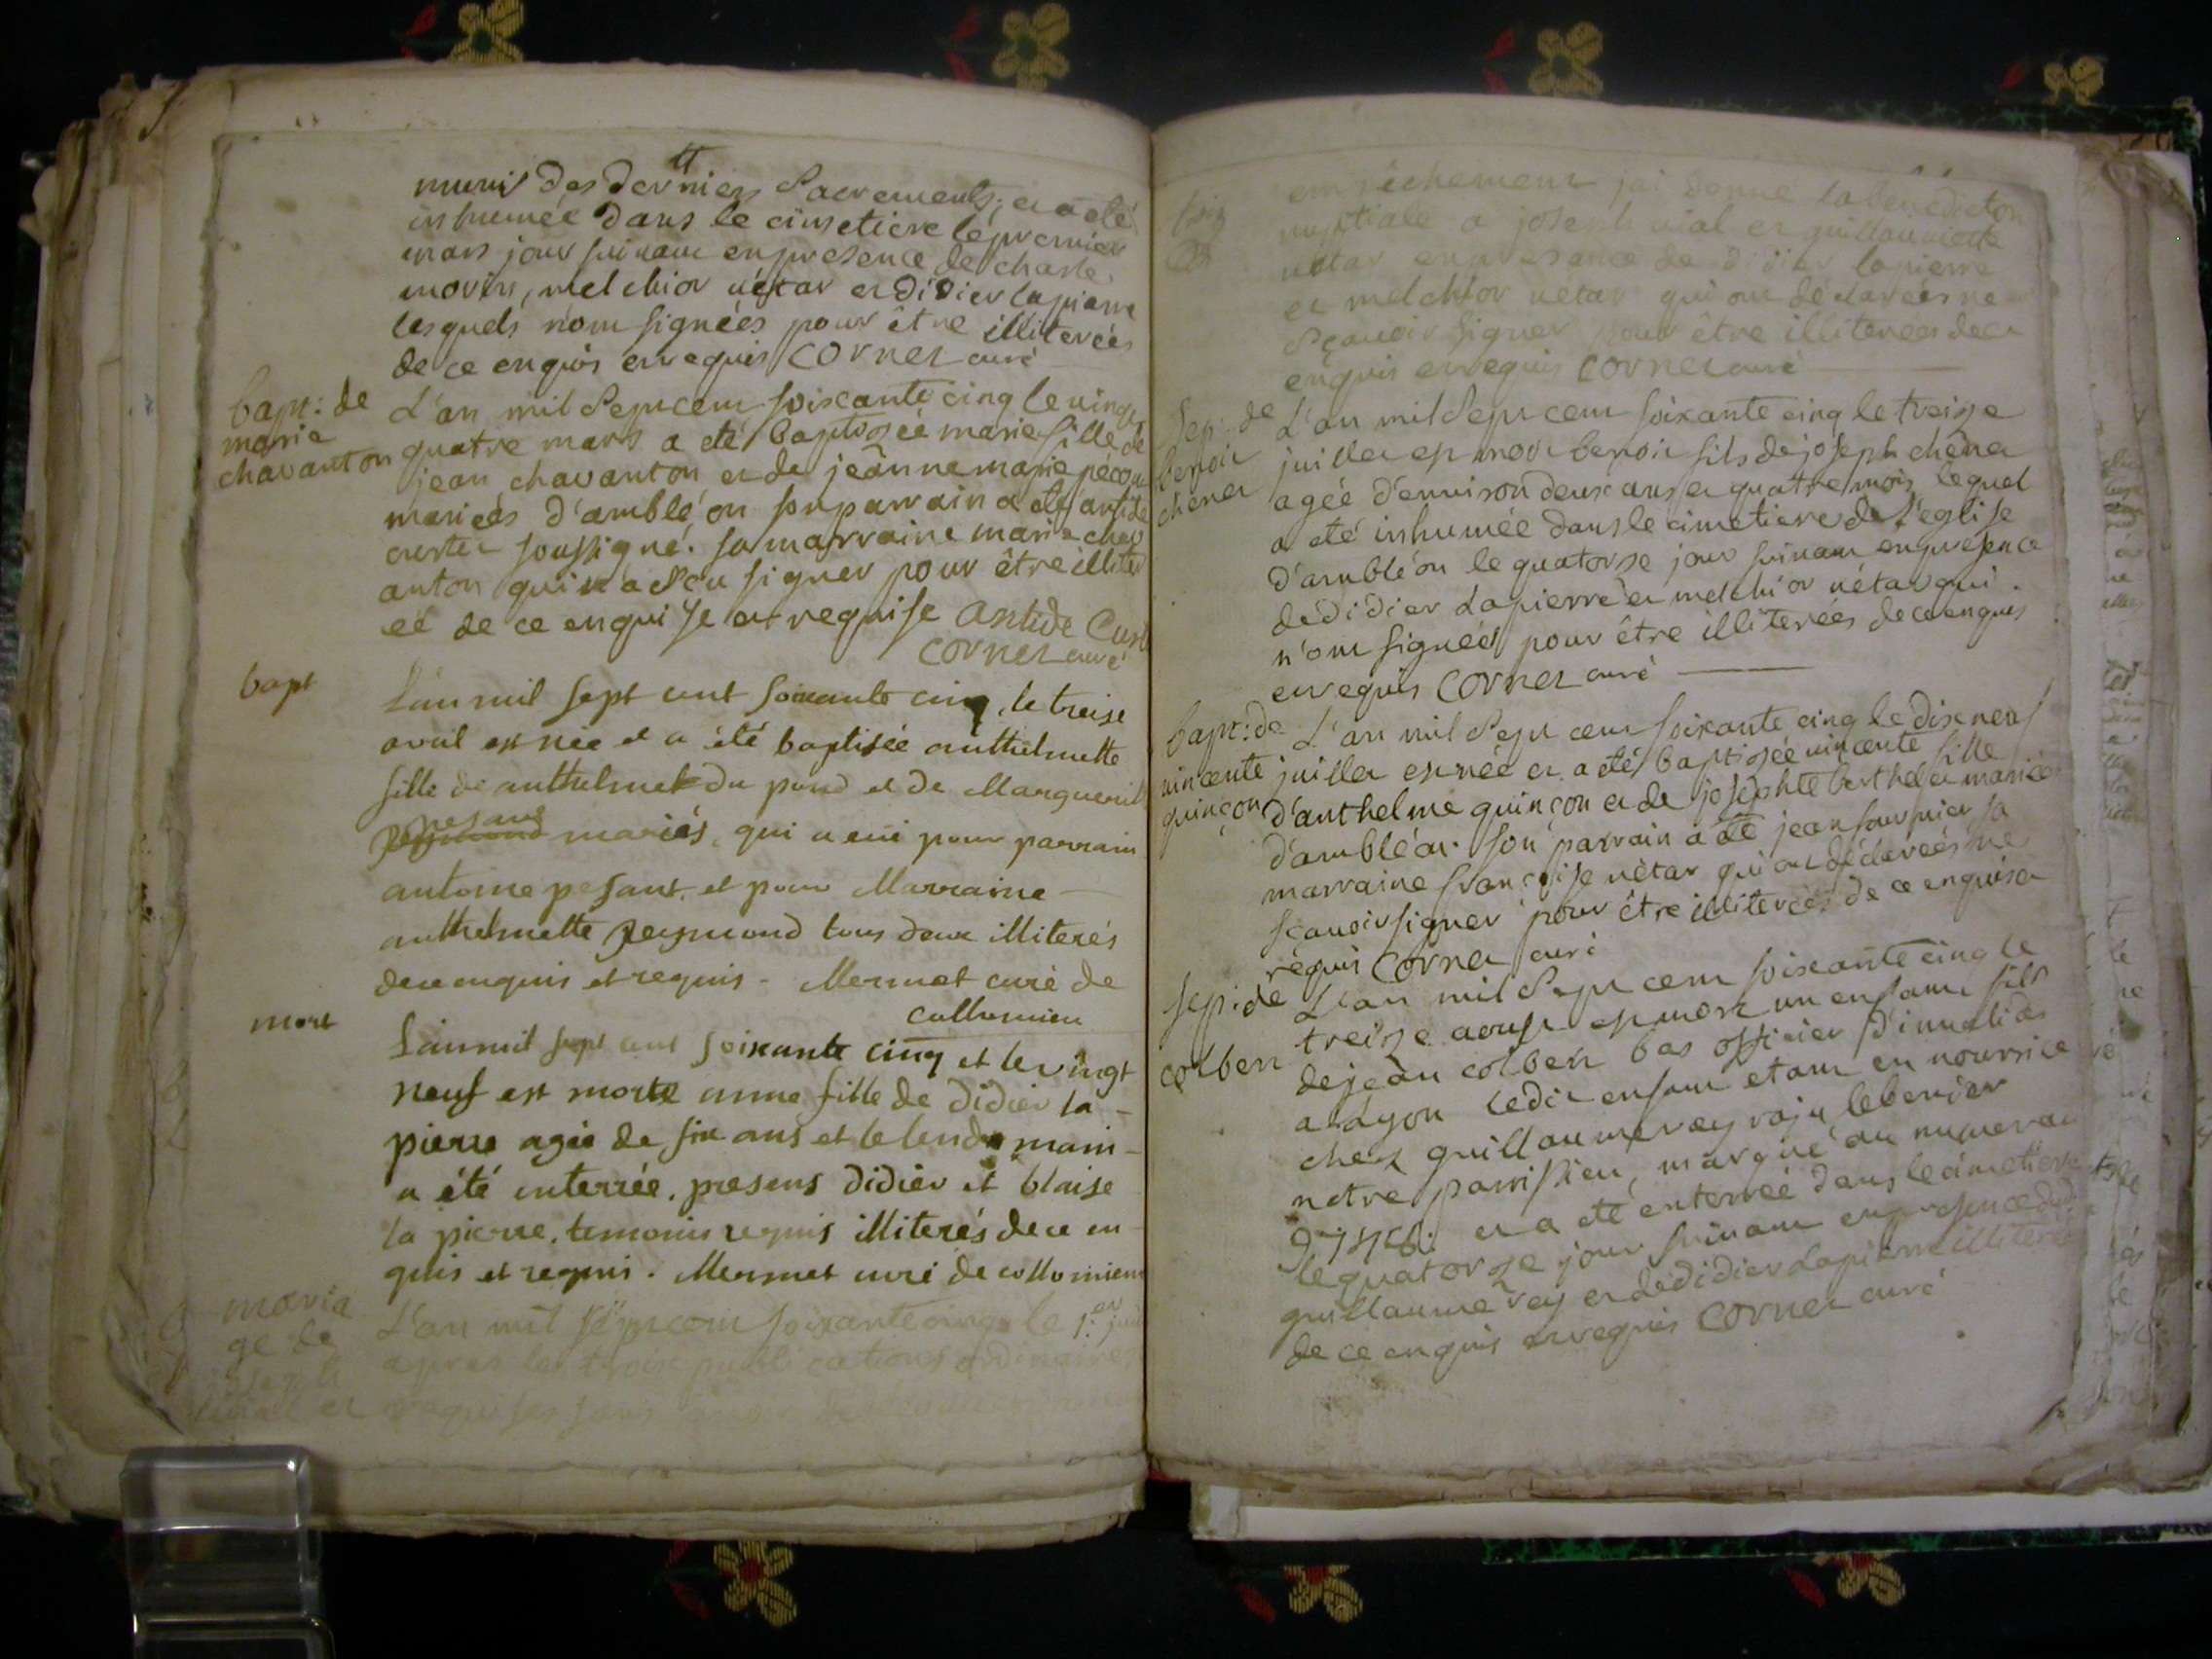 munis des derniers Sacrements, et a eté
inhumée dans le cimetiere le premier
mars jour suivant en presence de charle
morin, melchior vétar et didier lapierre
lesquels n'ont signées pour être illiterées
de ce enquis et requis Cornet curé
bapt: de
marie
chavanton
L'an mil Sept cent soixante cinq le vingt
quatre mars a eté baptisée marie fille de
jean chavanton et de jeanne marie
mariées d'ambléon son parrain a eté antide
soussigné. sa marraine marie chav
anton qui n'a scu signer pour être illiter
eé de ce enquise et requise antide
Cornet curé
bapt
L'an mil sept cent soixante cinq, le treise
avril est née et a été baptisée anthelmette
fille de anthelme du pond et de Marguerit
pesant
mariés, qui a eüe pour parrain
antoine pesant, et pour Marraine
anthelmette Reymond tous deux illiterés
de ce enquis et requis - Mermet curé de
collomieu
mort
L'an mil sept cent soixante cinq et le vingt
neuf est morte anne fille de didier la
pierre agée de six ans et le lendemain
a été enterrée, presens didier et blaise
la pierre, temoins requis illiterés de ce en
quis et requis. Mermet curé de collomieu
maria
ge de
joseph
vial et
L'an mil sept cent soixante cinq le 1.er
apres les trois publications ordinaires
requises sans
empêchement jai donné la benediction
nuptiale a joseph vial et guillaumette
vétar en presence de didier lapierre
et melchior vétar qui ont déclareés ne
Sçavoir signer pour être illitereés de ce
enquis et requis Cornet curé
Sep: de
benoit
chênet
L'an mil Sept cent soixante cinq le treize
juillet est mort benoit fils de joseph chênet
ageé d'environ deux ans et quatre mois lequel
a eté inhumée dans le cimetiere de l'eglise
d'ambléon le quatorze jour suivant en presence
de didier Lapierre et melchior vétar qui
n'ont signées pour être illitereés de ce enquis
et requis Cornet curé
bapt: de
vincente
quinçon
L'an mil Sept cent soixante cinq le dixneuf
juillet est née et a eté baptisée vincente fille
d'anthelme quinçon et de josephte berthelet mariés
d'ambléon. son parrain a été jean fournier sa
marraine françoise vétar qui ont déclareés ne
sçavoir signer pour être illitereés de ce enquis et
requis Cornet curé
Sep: de
colben
L'an mil Sept cent soixante cinq le
treize aoust est mort un enfant fils
de jean colben bas officier d'invalides
a Lyon ledit enfant etant en nourrice
chez guillaume rey
notre parroissien, marqué au numero
et a eté enterreé dans le cimetiere
le quatorze jour suivant en presence de
guillaume rey et de didier Lapierre illiterés
de ce enquis et requis Cornet curé